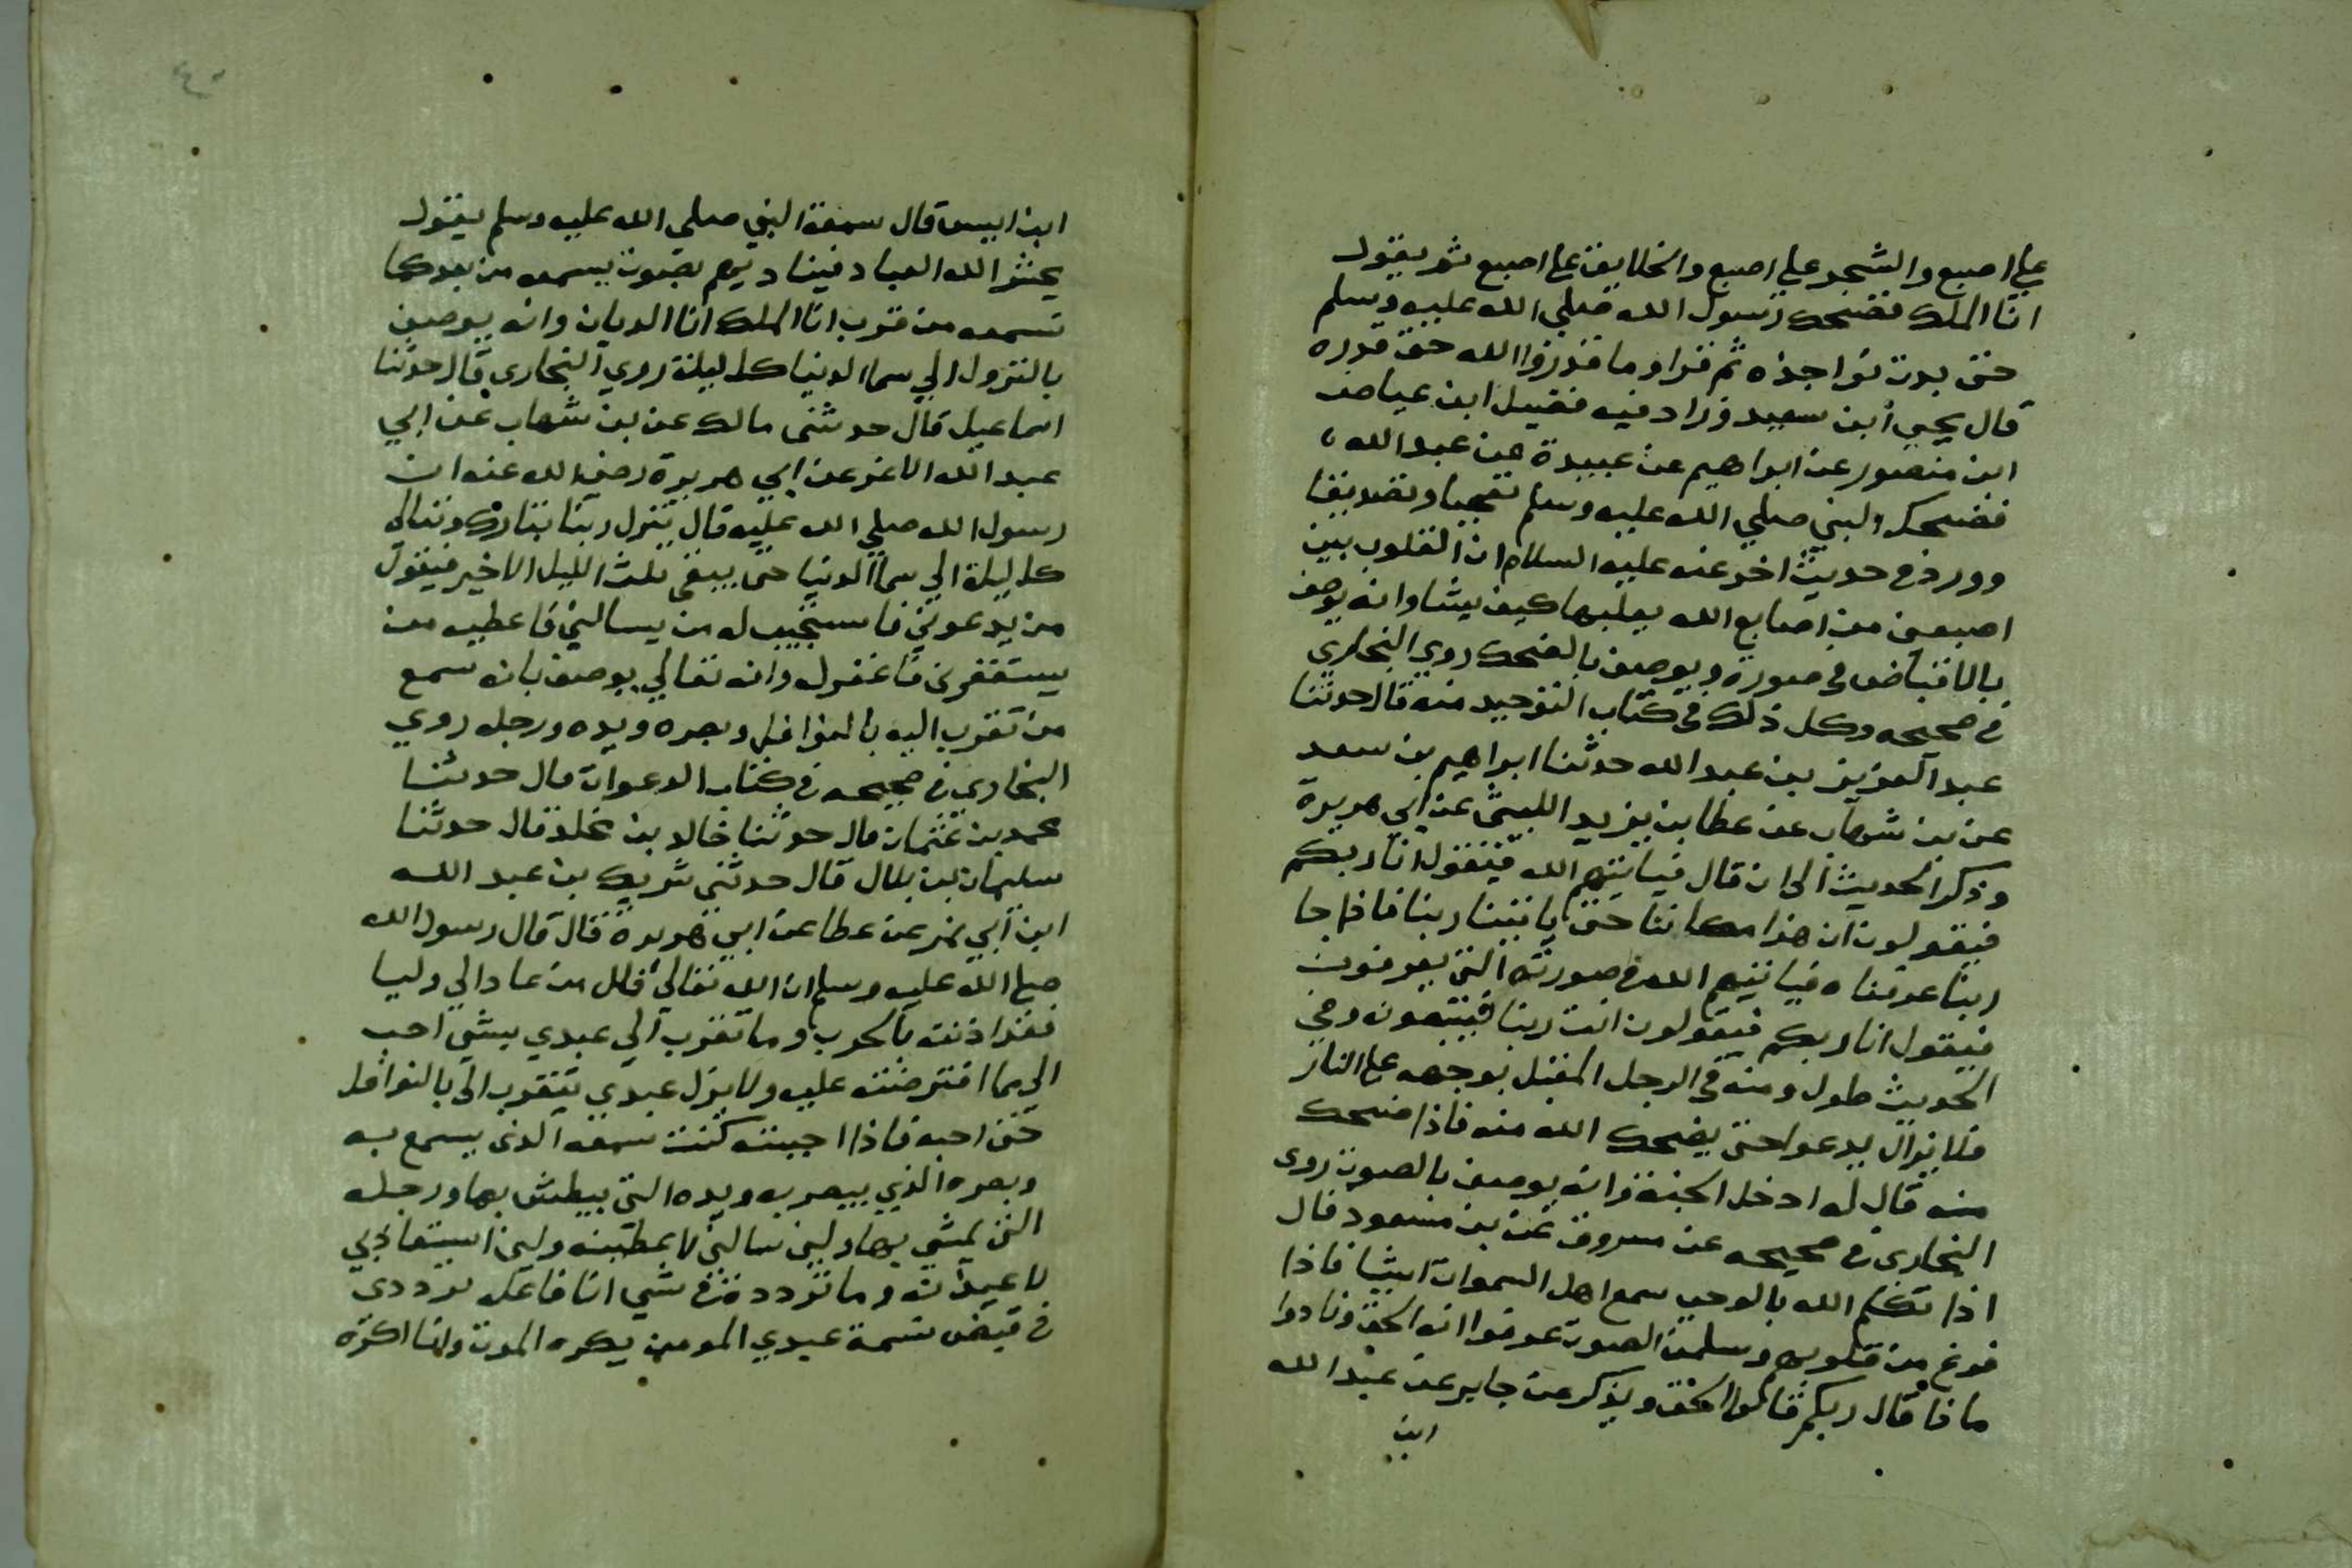 علي اصبع والشجر علي اصبع والخلايق علي اصبع ثم يقول
انا الملك فضحك رسول الله صلي الله عليه وسلم
حتي بدت نواجذه ثم قرا وما قدروا الله حق قدره
قال يحيي ابن سعيد وزاد فيه فضيل ابن عياض
ابن منصور عن ابراهيم عن عبيدة عن عبد الله
فضحك النبي صلي الله عليه وسلم تعجبا وتصديقا
وورد في حديث اخر عنه عليه السلام ان القلوب بين
اصبعين من اصابع الله يقلبها كيف يشا وانه يوصف
بالاقباض في صورة ويوصف بالضحك روي البخاري
في صحيحه وكل ذلك في كتاب التوحيد منه قال حدثنا
عبد العزيز بن عبد الله حدثنا ابراهيم بن سعد
عن بن شهاب عن عطا بن يزيد الليثي عن ابي هريرة
وذكر الحديث الي ان قال فياتيهم الله فيقول انا ربكم
فيقولون ان هذا مكاننا حتي ياتينا ربنا فاذا جا
ربنا عرفناه فياتيهم الله في صورته التي يعرفون
فيقول انا ربكم فيقولون انت ربنا فيتبعونه وفي
الحديث طول ومنه في الرجل المقبل بوجهه علي النار
فلا يزال يدعوا حتي يضحك الله منه فاذا ضحك
منه قال له ادخل الجنة وانه يوصف بالصوت روي
البخاري في صحيحه عن مسروق عن بن مسعود قال
اذا تكلم الله بالوحي سمع اهل السموات شيا فاذا
فزع من قلوبهم وسلمن الصوت عرفوا انه الحق ونادوا
ماذا قال ربكم قالوا الحق ويذكر عن جابر عن عبد الله
ابن
٤٠
ابن انيس قال سمعت النبي صلي الله عليه وسلم يقول
يحشر الله العباد فيناديهم بصوت يسمعه من بعد كما
يسمعه من قرب انا الملك انا الديان وانه يوصف
بالنزول الي سما الدنيا كل ليلة روي البخاري قال حدثنا
اسماعيل قال حدثني مالك عن بن شهاب عن ابي
عبد الله الاغر عن ابي هريرة رضي الله عنه ان
رسول الله صلي الله عليه قال ينزل ربنا تبارك وتعالي
كل ليلة الي سما الدنيا حتي يبقي ثلث الليل الاخير فيقول
من يدعوني فاستجيب له من يسالني فاعطيه من
يستغفرني فاغفر له وانه تعالي يوصف بانه سمع
من تقرب اليه بالنوافل وبصره ويده ورجله روي
البخاري في صحيحه في كتاب الدعوات قال حدثنا
محمد بن عثمان قال حدثنا خالد بن مخلد قال حدثنا
سليمان بن بلال قال حدثني شريك بن عبد الله
ابن ابي نمر عن عطا عن ابي هريرة قال قال رسول الله
صلي الله عليه وسلم ان الله تعالي قال من عادا لي وليا
فقد اذنته بالحرب وما تقرب الي عبدي بشي احب
الي مما افترضته عليه ولا يزل عبدي يتقرب الي بالنوافل
حتي احبه فاذا احببته كنت سمعه الذي يسمع به
وبصره الذي يبصر به ويده التي يبطش بها ورجله
التي يمشي بها ولين سالني لاعطينه ولين استعاذ بي
لاعيذنه وما ترددت في شي انا فاعله ترددي
في قبض نسمة عبدي المومن يكره الموت وانا اكره